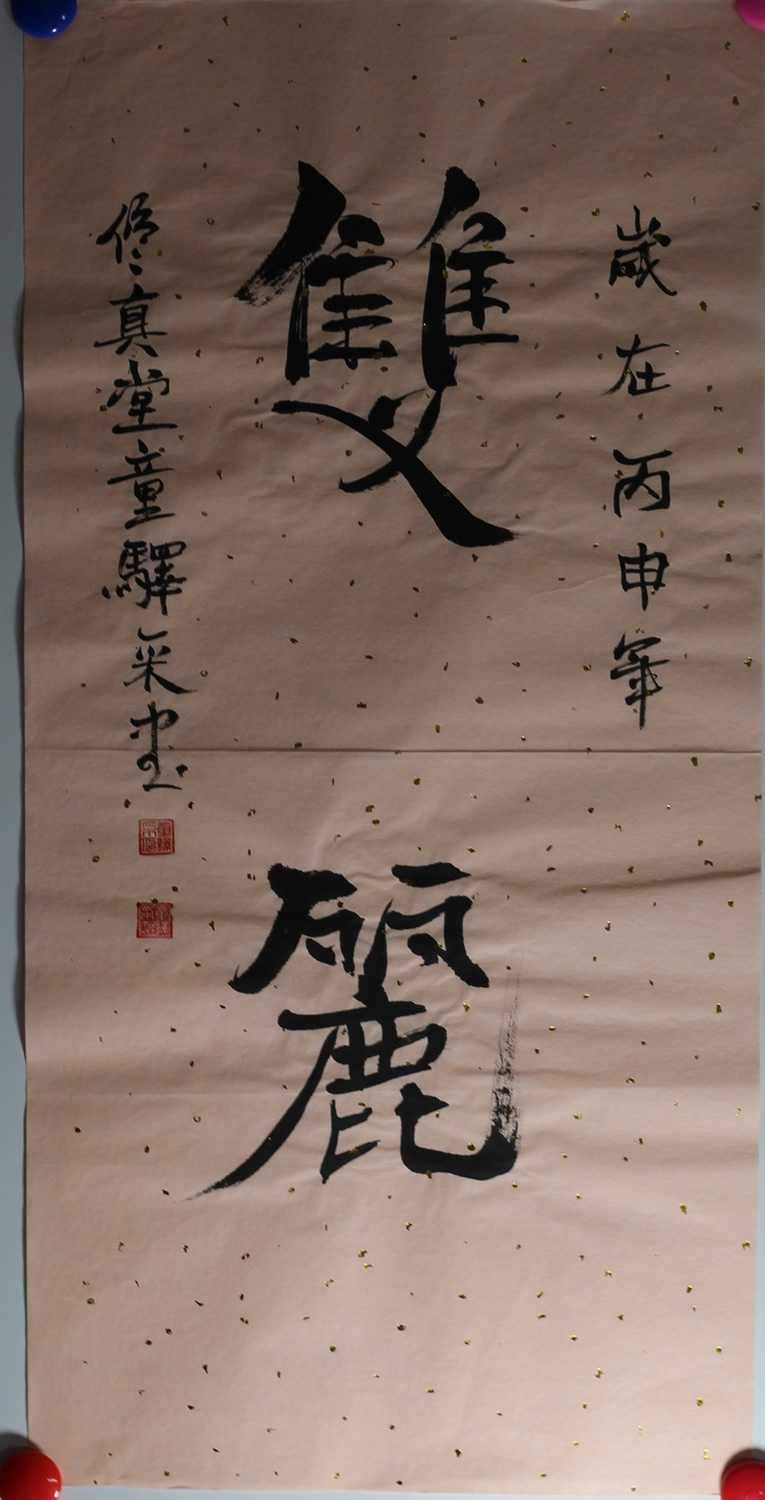 歲在丙申年
雙麗
真堂童驛采書